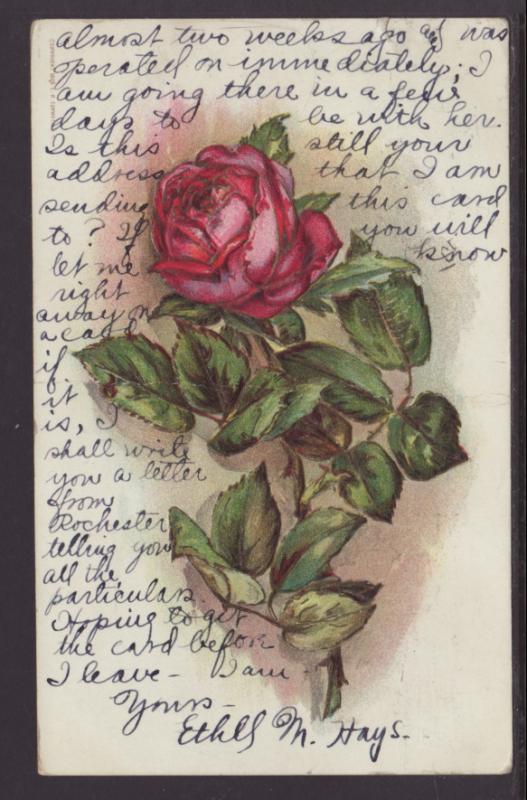 almost two weeks ago and was
operated on immediately; I
am going there in a few
days to be with her.
Is this still your
address that I am
sending this card
to? If you will
let me know
right
away on
a card
if
it
is, I
shall write
you a letter
from
Rochester
telling you
all the
particulars
Hoping to get
the card before
I leave - I am -
Yours -
Ethel M. Hays.